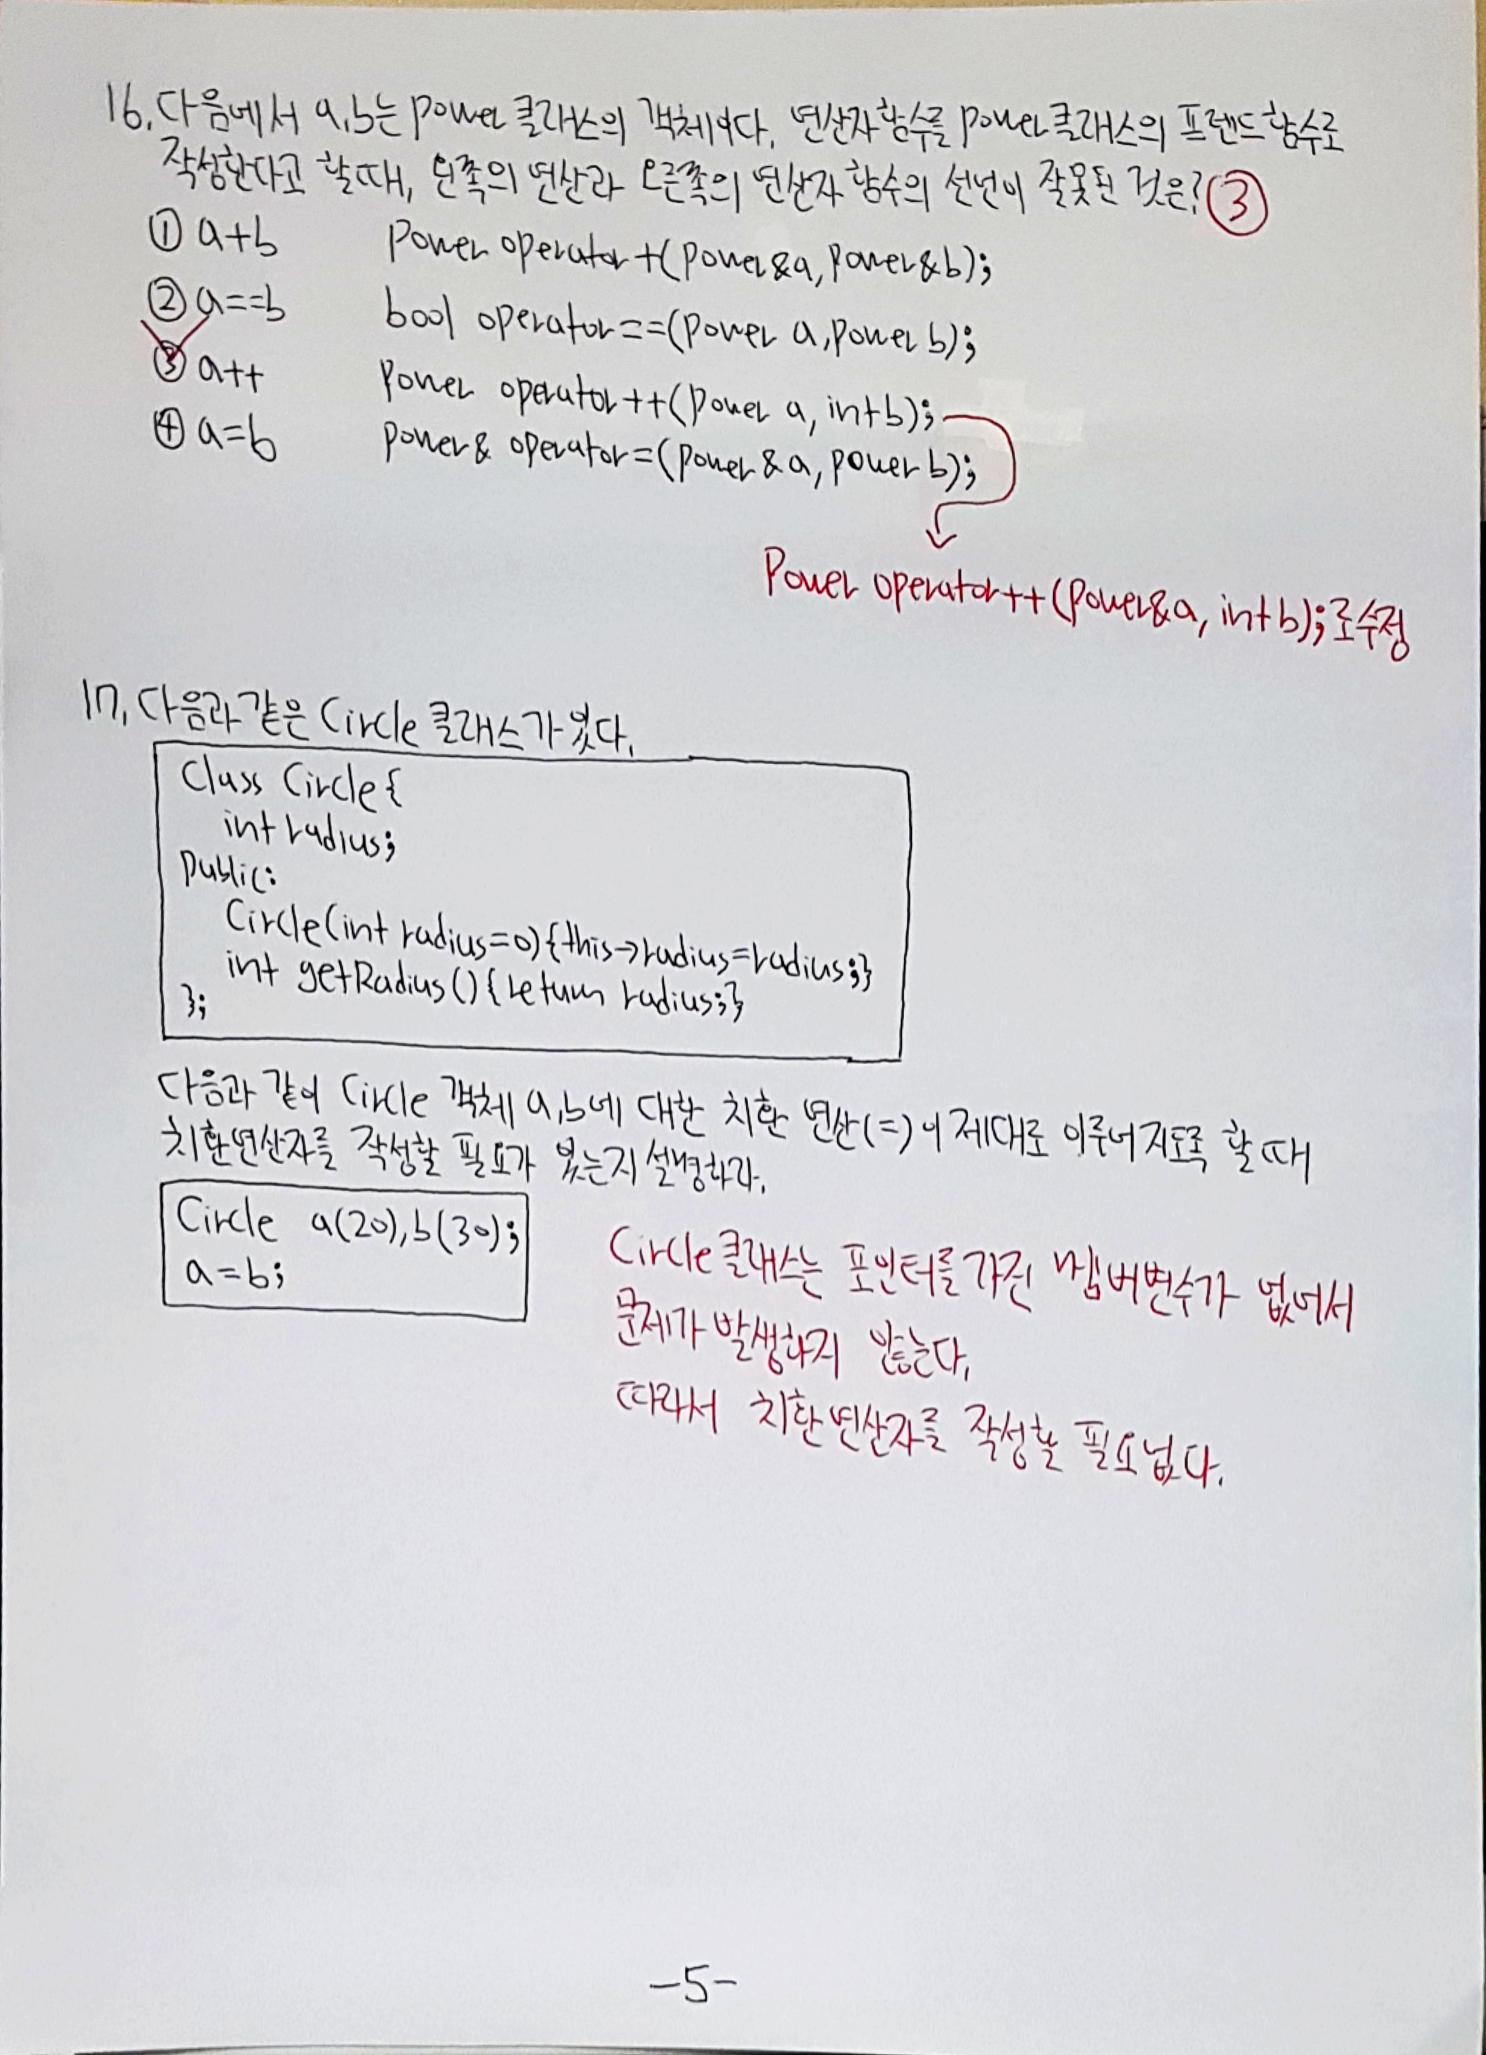 16. 다음에서 a,b는 power 클래스의 객체이다. 연산자 함수를 power 클래스의 프렌드 함수로
작성한다고 할 때, 왼쪽의 연산과 오른쪽의 연산자 함수의 선언이 잘못된 것은? ③
① a+b Power operator+(power&a, power&b);
② a==b bool operator==(power a, power b);
③ a++ power operator++(power a, int b);
④ a=b power& operator=(power&a, power b);
Power operator++(power&a, int b);로 수정
17. 다음과 같은 Circle 클래스가 있다.
Class Circle{
int radius;
public:
Circle(int radius=0){this->radius=radius;}
int getRadius(){return radius;}
};
다음과 같이 Circle 객체 a,b에 대한 치환 연산(=)이 제대로 이루어지도록 할 때
치환연산자를 작성할 필요가 있는지 설명하라.
Circle a(20),b(30);
a=b;
Circle클래스는 포인터를 가진 멤버변수가 없어서
문제가 발생하지 않는다.
따라서 치환연산자를 작성할 필요없다.
-5-